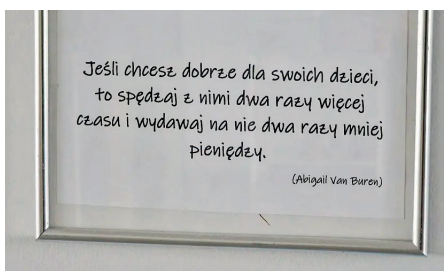 Jeśli chcesz dobrze dla swoich dzieci,
to spędzaj z nimi dwa razy więcej
czasu i wydawaj na nie dwa razy mniej
pieniędzy.
(Abigail Van Buren)